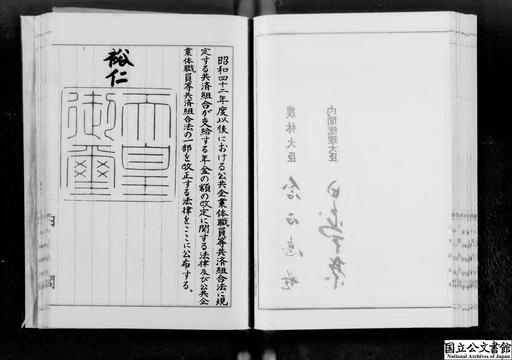 昭和四十二年度以後における公共企業体職員等共済組合法に規
定する共済組合が支給する年金の額の改定に関する法律及び公共企
業体職員等共済組合法の一部を改正する法律をここに公布する。
裕仁
天皇
御璽
内閣
内閣総理大臣
農林大臣
国立公文書館
National Archives of Japan